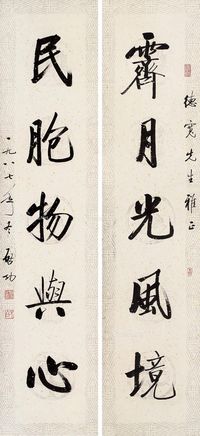 霽月光風境
德寬先生雅正
民胞物與心
一九八七年冬 啟功